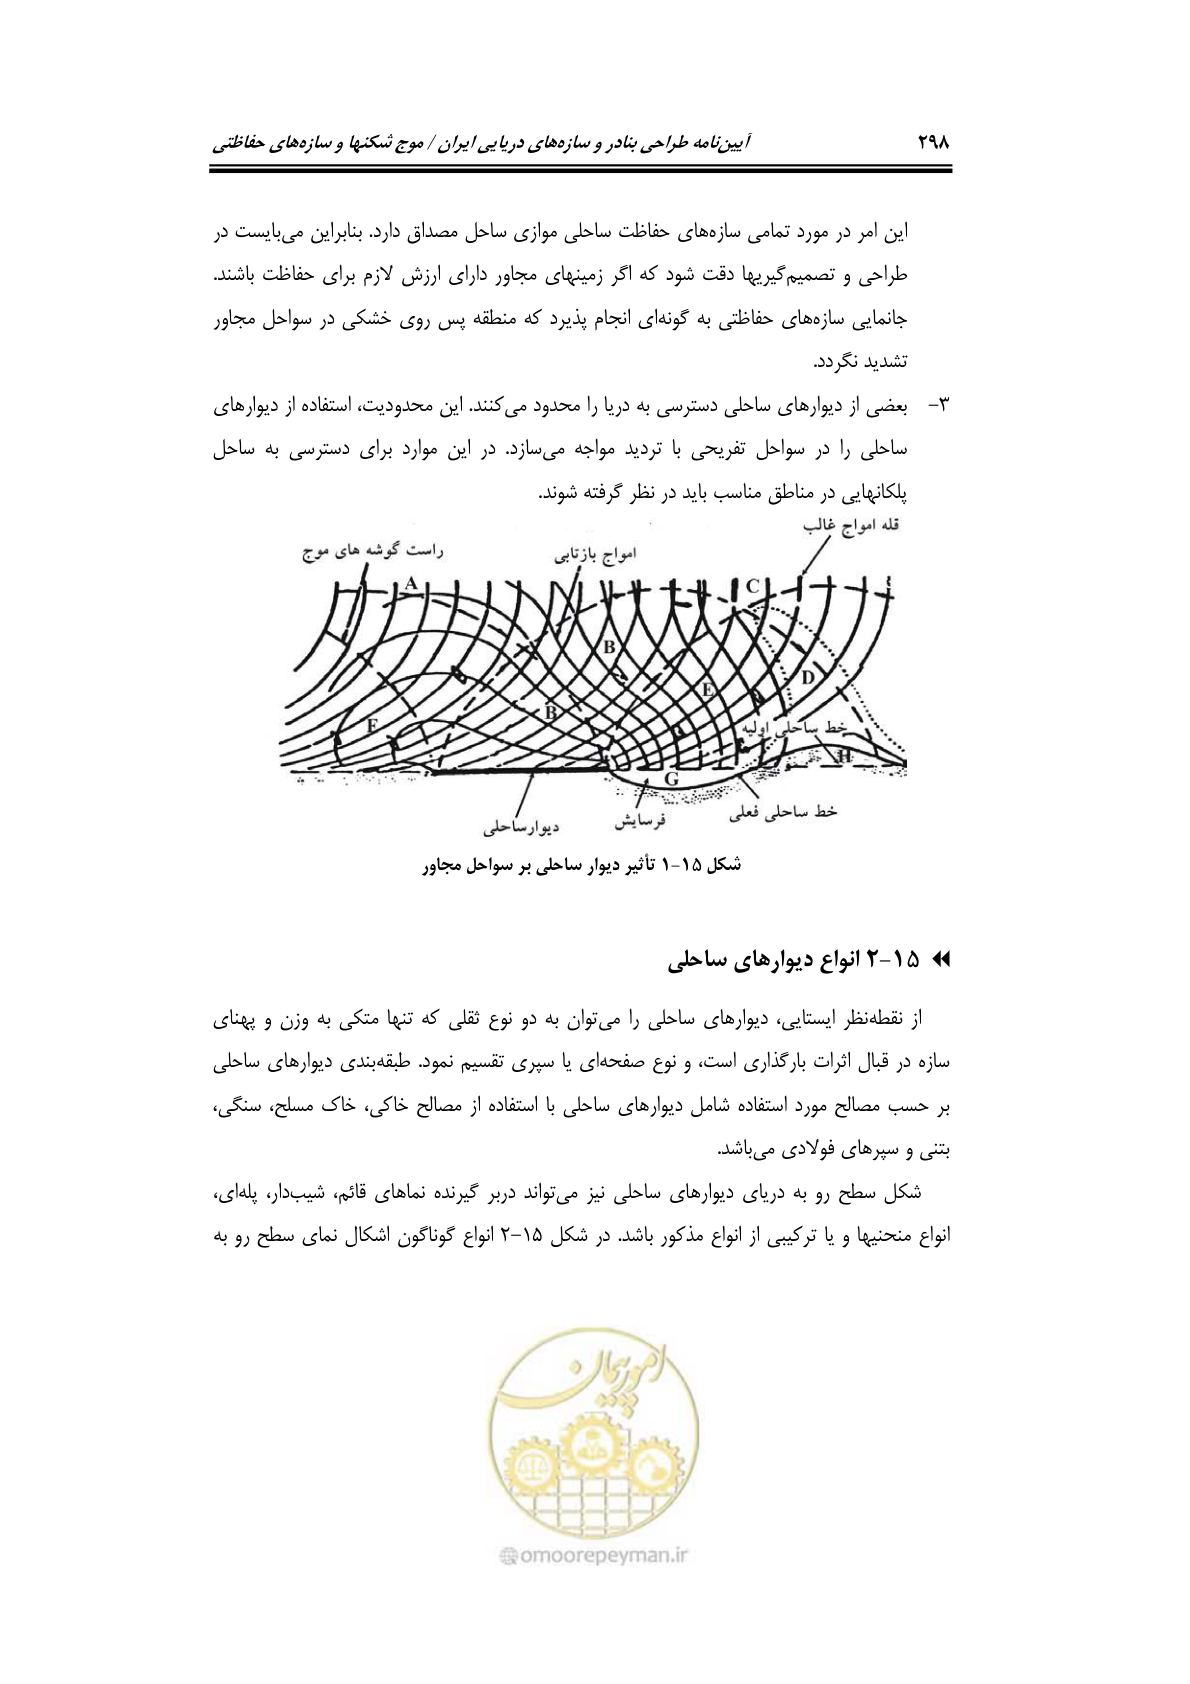 ۲۹۸ آیین‌نامه طراحی بنادر و سازه‌های دریایی ایران / موج شکنها و سازه‌های حفاظتی
این امر در مورد تمامی سازه‌های حفاظت ساحلی موازی ساحل مصداق دارد. بنابراین می‌بایست در
طراحی و تصمیم‌گیریها دقت شود که اگر زمینهای مجاور دارای ارزش لازم برای حفاظت باشند.
جانمایی سازه‌های حفاظتی به گونه‌ای انجام پذیرد که منطقه پس روی خشکی در سواحل مجاور
تشدید نگردد.
۳- بعضی از دیوارهای ساحلی دسترسی به دریا را محدود می‌کنند. این محدودیت، استفاده از دیوارهای
ساحلی را در سواحل تفریحی با تردید مواجه می‌سازد. در این موارد برای دسترسی به ساحل
پلکانهایی در مناطق مناسب باید در نظر گرفته شوند.
قله امواج غالب
امواج بازتابی
راست گوشه های موج
A
C
B
D
E
B
E
خط ساحلی اولیه
H
G
خط ساحلی فعلی
فرسایش
دیوارساحلی
شکل ۱۵-۱ تأثیر دیوار ساحلی بر سواحل مجاور
۱۵-۲ انواع دیوارهای ساحلی
از نقطه‌نظر ایستایی، دیوارهای ساحلی را می‌توان به دو نوع ثقلی که تنها متکی به وزن و پهنای
سازه در قبال اثرات بارگذاری است، و نوع صفحه‌ای یا سپری تقسیم نمود. طبقه‌بندی دیوارهای ساحلی
بر حسب مصالح مورد استفاده شامل دیوارهای ساحلی با استفاده از مصالح خاکی، خاک مسلح، سنگی،
بتنی و سپرهای فولادی می‌باشد.
شکل سطح رو به دریای دیوارهای ساحلی نیز می‌تواند دربر گیرنده نماهای قائم، شیب‌دار، پله‌ای،
انواع منحنیها و یا ترکیبی از انواع مذکور باشد. در شکل ۱۵-۲ انواع گوناگون اشکال نمای سطح رو به
امور پیمان
@omoorepeyman.ir